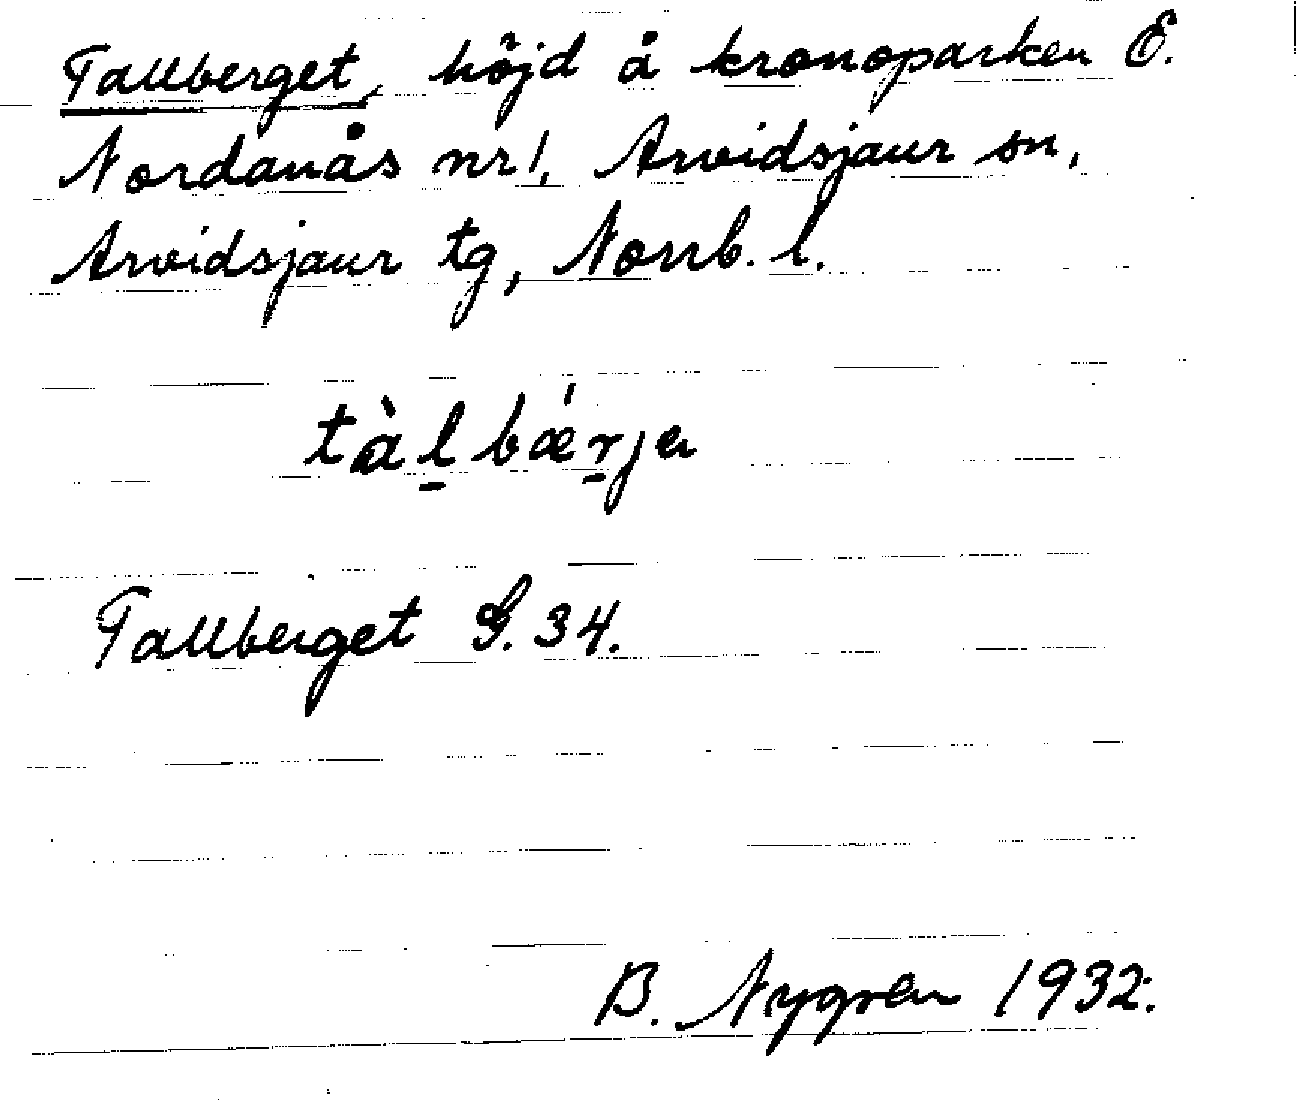 Tallberget, höjd å kronoparken Ö.
Nordanås nr 1, Arvidsjaur sn,
Arvidsjaur tg, Norrb. l.
tàl̠ bǽr̠je
Tallberget G. 34.
B. Nygren 1932.